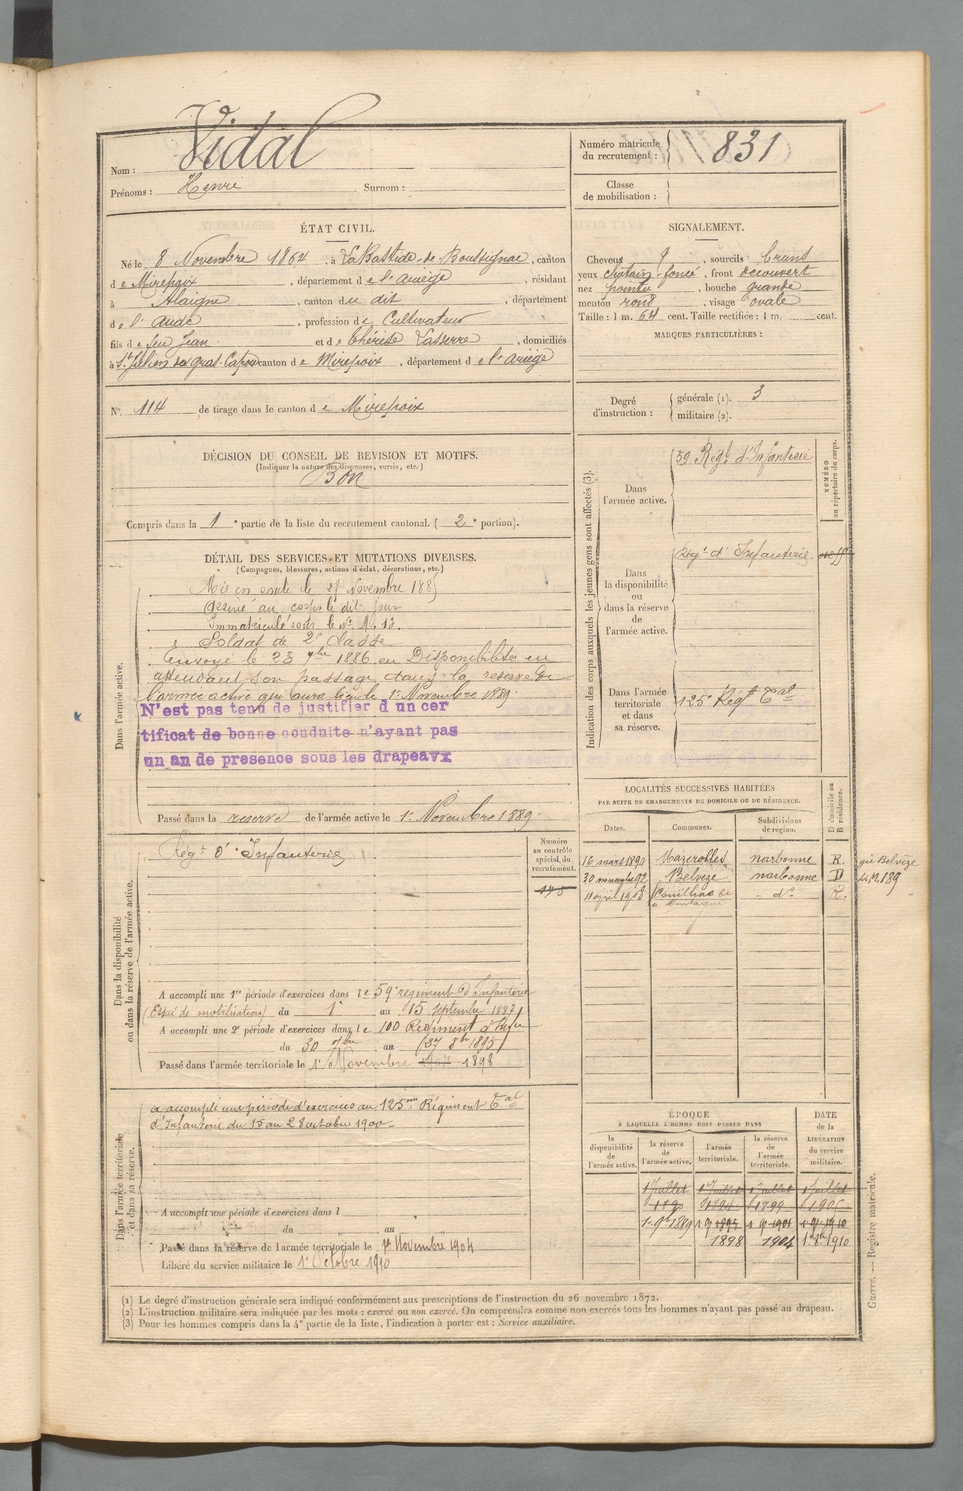 Nom : Vidal
Prénoms : Henri Surnom :
Numéro matricule du recrutement : 831
Classe de mobilisation :
ÉTAT CIVIL.
Né le 8 Novembre 1864, à LaBastide-de-Boussignac, canton
de Mirepoix, département de l'ariège, résidant
à Alaigne, canton du dit, département
de l'aude, profession de Cultivateur
fils de feu Jean et de thérèse Lasserre, domiciliés
à St Julien de gras-Capou canton de Mirepoix, département de l'ariège
SIGNALEMENT.
Cheveux, sourcils bruns
yeux chatain-foncé, front découvert
nez pointu, bouche grande
menton rond, visage ovale
Taille : 1 m. 64 cent. Taille rectifiée : 1 m. cent.
MARQUES PARTICULIÈRES :
N° 114 de tirage dans le canton de Mirepoix
Degré d'instruction : générale (1). 3
militaire (2).
DÉCISION DU CONSEIL DE REVISION ET MOTIFS.
(Indiquer la nature des dispenses, sursis, etc.)
Bon
Compris dans la 1e partie de la liste du recrutement cantonal. (2e portion).
DÉTAIL DES SERVICES ET MUTATIONS DIVERSES.
(Campagnes, blessures, actions d'éclat, décorations, etc.)
Dans l'armée active.
Mis en route le Novembre 1885
au corps le dit jour
Immatriculé sous le n°
Soldat de 2e classe
Envoyé le 23 7bre 1886 en Disponibilité en
attendant son passage dans la réserve de
l'armée active qui aura lieu le 1er Novembre 1889.
N'est pas tenu de justifier d un cer
tificat de bonne conduite n'ayant pas
un an de presence sous les drapeaux
Passé dans la reserve de l'armée active le 1er Novembre 1889.
Indication des corps auxquels les jeunes gens sont affectés (3).
NUMÉRO au répertoire du corps.
Dans l'armée active.
59 Régt d'Infanterie
Dans la disponibilité ou dans la réserve de l'armée active.
Régt d'Infanterie
Dans l'armée territoriale et dans sa réserve.
125e Régt Tal
LOCALITÉS SUCCESSIVES HABITÉES
PAR SUITE DE CHANGEMENTS DE DOMICILE OU DE RÉSIDENCE.
Dates. Communes. Subdivisions de région. D domicile ou R résidence.
16 mars 1890 Mazerolles narbonne R.
30 novembre 92 Belvèze narbonne D
11 april 1908 Couilhac de la Montagne do R.
Dans la disponibilité ou dans la réserve de l'armée active.
Régt d'Infanterie
Numéro au contrôle spécial du recrutement.
A accompli une 1re période d'exercices dans le 59e régiment d'Infanterie
(Essai de mobilisation) du 1er au 15 Septembre 1887
A accompli une 2e période d'exercices dans le 100 Régiment d'Infie
du 30 7bre au 27 8bre 1895
Passé dans l'armée territoriale le 1er Novembre 1898
Dans l'armée territoriale et dans sa réserve.
a accompli une période d'exercices au 125eme Régiment Tal
d'Infanterie du 15 au 28 octobre 1900
A accompli une période d'exercices dans l
du au
Passé dans la réserve de l'armée territoriale le 1er Novembre 1904
Libéré du service militaire le 1er Octobre 1910
ÉPOQUE
À LAQUELLE L'HOMME DOIT PASSER DANS
DATE de la LIBÉRATION du service militaire.
la disponibilité de l'armée active. la réserve de l'armée active. l'armée territoriale. la réserve de l'armée territoriale.
1 Juillet 1 Juillet 1 Juillet 1 Juillet
1890 1899 1905
1er 9bre 1889
1898 1904 1910
(1) Le degré d'instruction générale sera indiqué conformément aux prescriptions de l'instruction du 26 novembre 1872.
(2) L'instruction militaire sera indiquée par les mots : exercé ou non exercé. On comprendra comme non exercés tous les hommes n'ayant pas passé au drapeau.
(3) Pour les hommes compris dans la 4e partie de la liste, l'indication à porter est : Service auxiliaire.
Guerre. — Registre matricule.